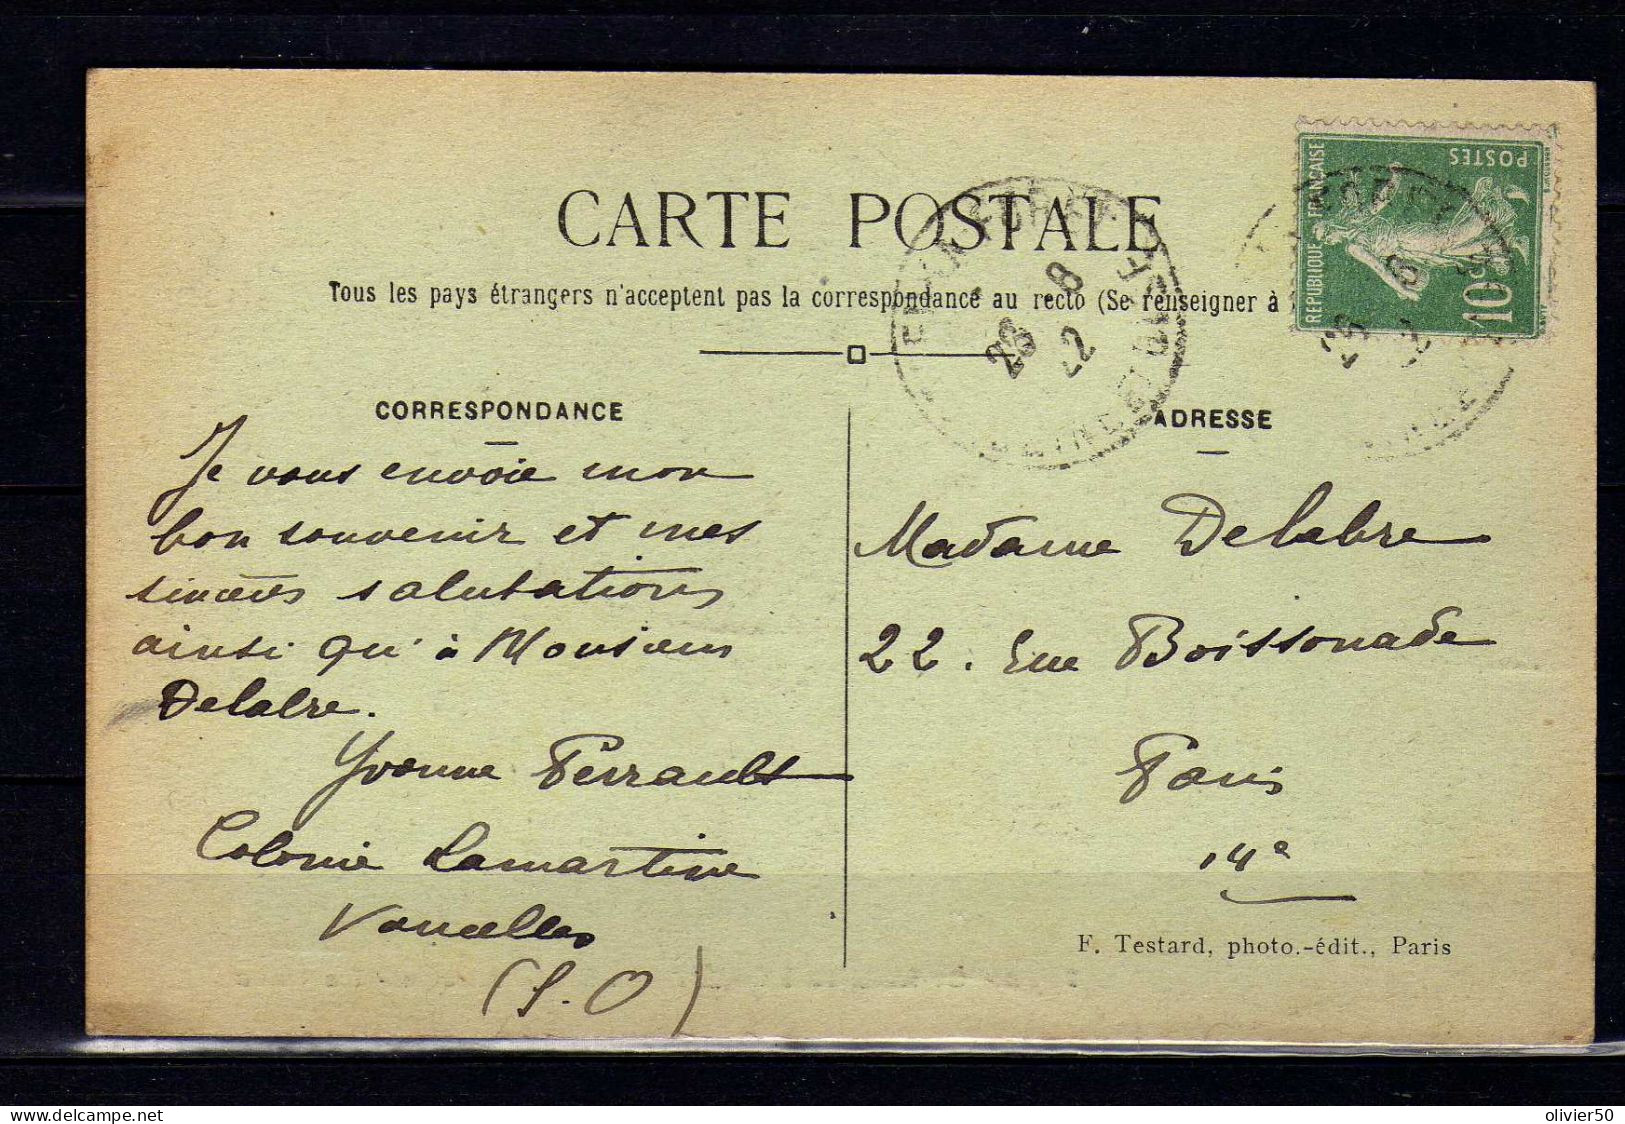 CARTE POSTALE
Tous les pays étrangers n'acceptent pas la correspondance au recto (Se renseigner à
RÉPUBLIQUE FRANÇAISE
POSTES
10c
28 8
22
CORRESPONDANCE
Je vous envoie mon
bon souvenir et mes
sincères salutations
ainsi qu'à Monsieur
Delabre.
Yvonne Perrault
Colonie Lamartine
Vaucelles
(S.O)
ADRESSE
Madame Delabre
22. rue Boissonade
Paris
14e
F. Testard, photo.-édit., Paris
olivier50